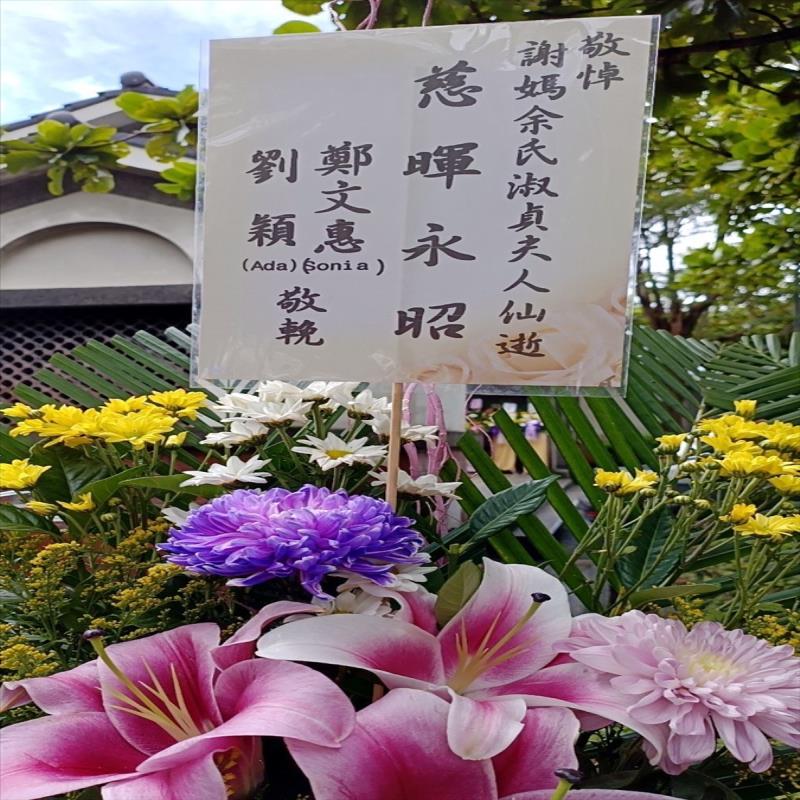 敬悼
謝媽余氏淑貞夫人仙逝
慈暉永昭
鄭文惠
(Sonia)
劉穎
(Ada)
敬輓